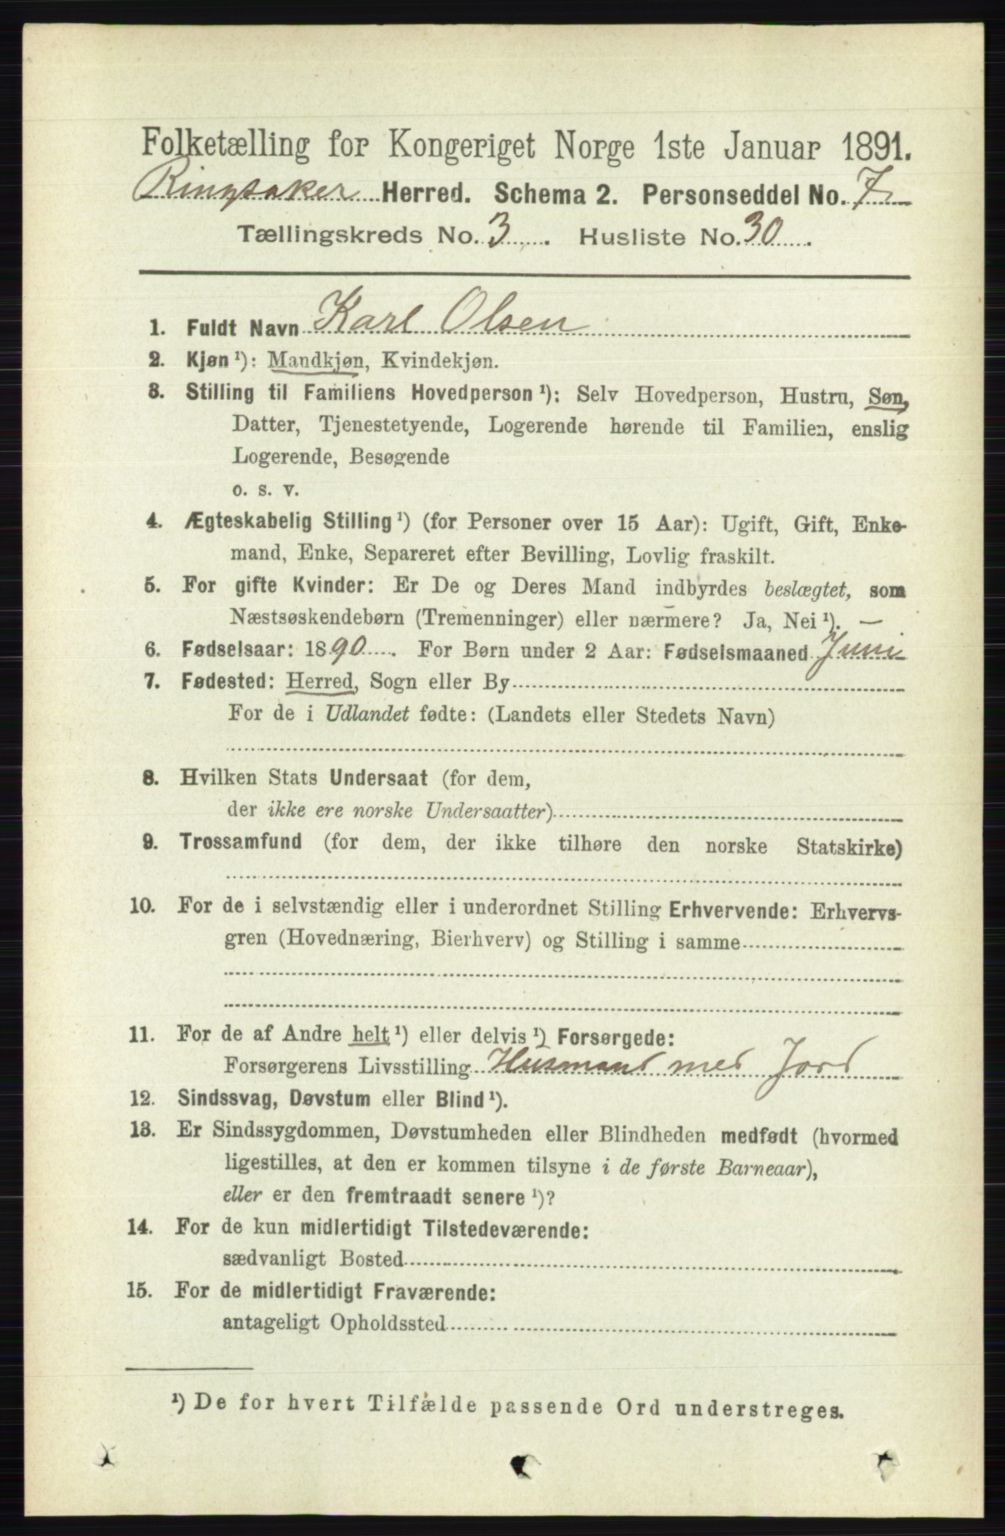 Folketælling for Kongeriget Norge 1ste Januar 1891.
Ringsaker Herred. Schema 2. Personseddel No. 7
Tællingskreds No. 3. Husliste No. 30.
1. Fuldt Navn Karl Olsen
2. Kjøn ¹): Mandkjøn, Kvindekjøn.
3. Stilling til Familiens Hovedperson ¹): Selv Hovedperson, Hustru, Søn,
Datter, Tjenestetyende, Logerende hørende til Familien, enslig
Logerende, Besøgende
o. s. v.
4. Ægteskabelig Stilling ¹) (for Personer over 15 Aar): Ugift, Gift, Enke-
mand, Enke, Separeret efter Bevilling, Lovlig fraskilt.
5. For gifte Kvinder: Er De og Deres Mand indbyrdes beslægtet, som
Næstsøskendebørn (Tremenninger) eller nærmere? Ja, Nei ¹). —
6. Fødselsaar: 1890. For Børn under 2 Aar: Fødselsmaaned Juni
7. Fødested: Herred, Sogn eller By
For de i Udlandet fødte: (Landets eller Stedets Navn)
8. Hvilken Stats Undersaat (for dem,
der ikke ere norske Undersaatter)
9. Trossamfund (for dem, der ikke tilhøre den norske Statskirke)
10. For de i selvstændig eller i underordnet Stilling Erhvervende: Erhvervs-
gren (Hovednæring, Bierhverv) og Stilling i samme
11. For de af Andre helt ¹) eller delvis ¹) Forsørgede:
Forsørgerens Livsstilling Husmand med Jord
12. Sindssvag, Døvstum eller Blind ¹).
13. Er Sindssygdommen, Døvstumheden eller Blindheden medfødt (hvormed
ligestilles, at den er kommen tilsyne i de første Barneaar),
eller er den fremtraadt senere ¹)?
14. For de kun midlertidigt Tilstedeværende:
sædvanligt Bosted
15. For de midlertidigt Fraværende:
antageligt Opholdssted
¹) De for hvert Tilfælde passende Ord understreges.